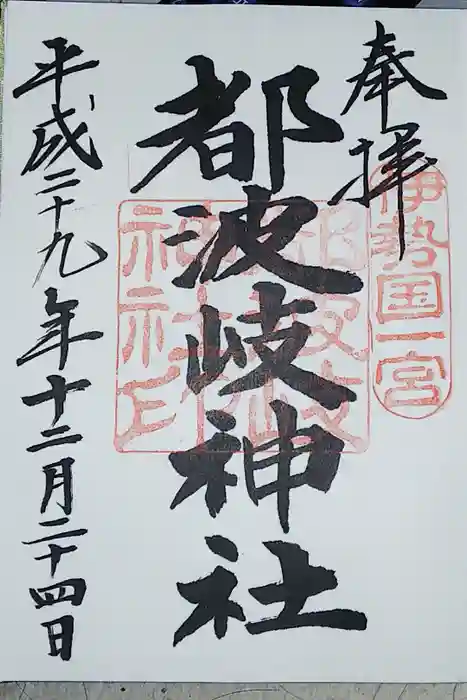 奉拝
伊勢国一宮
都波岐神社
平成二十九年十二月二十四日